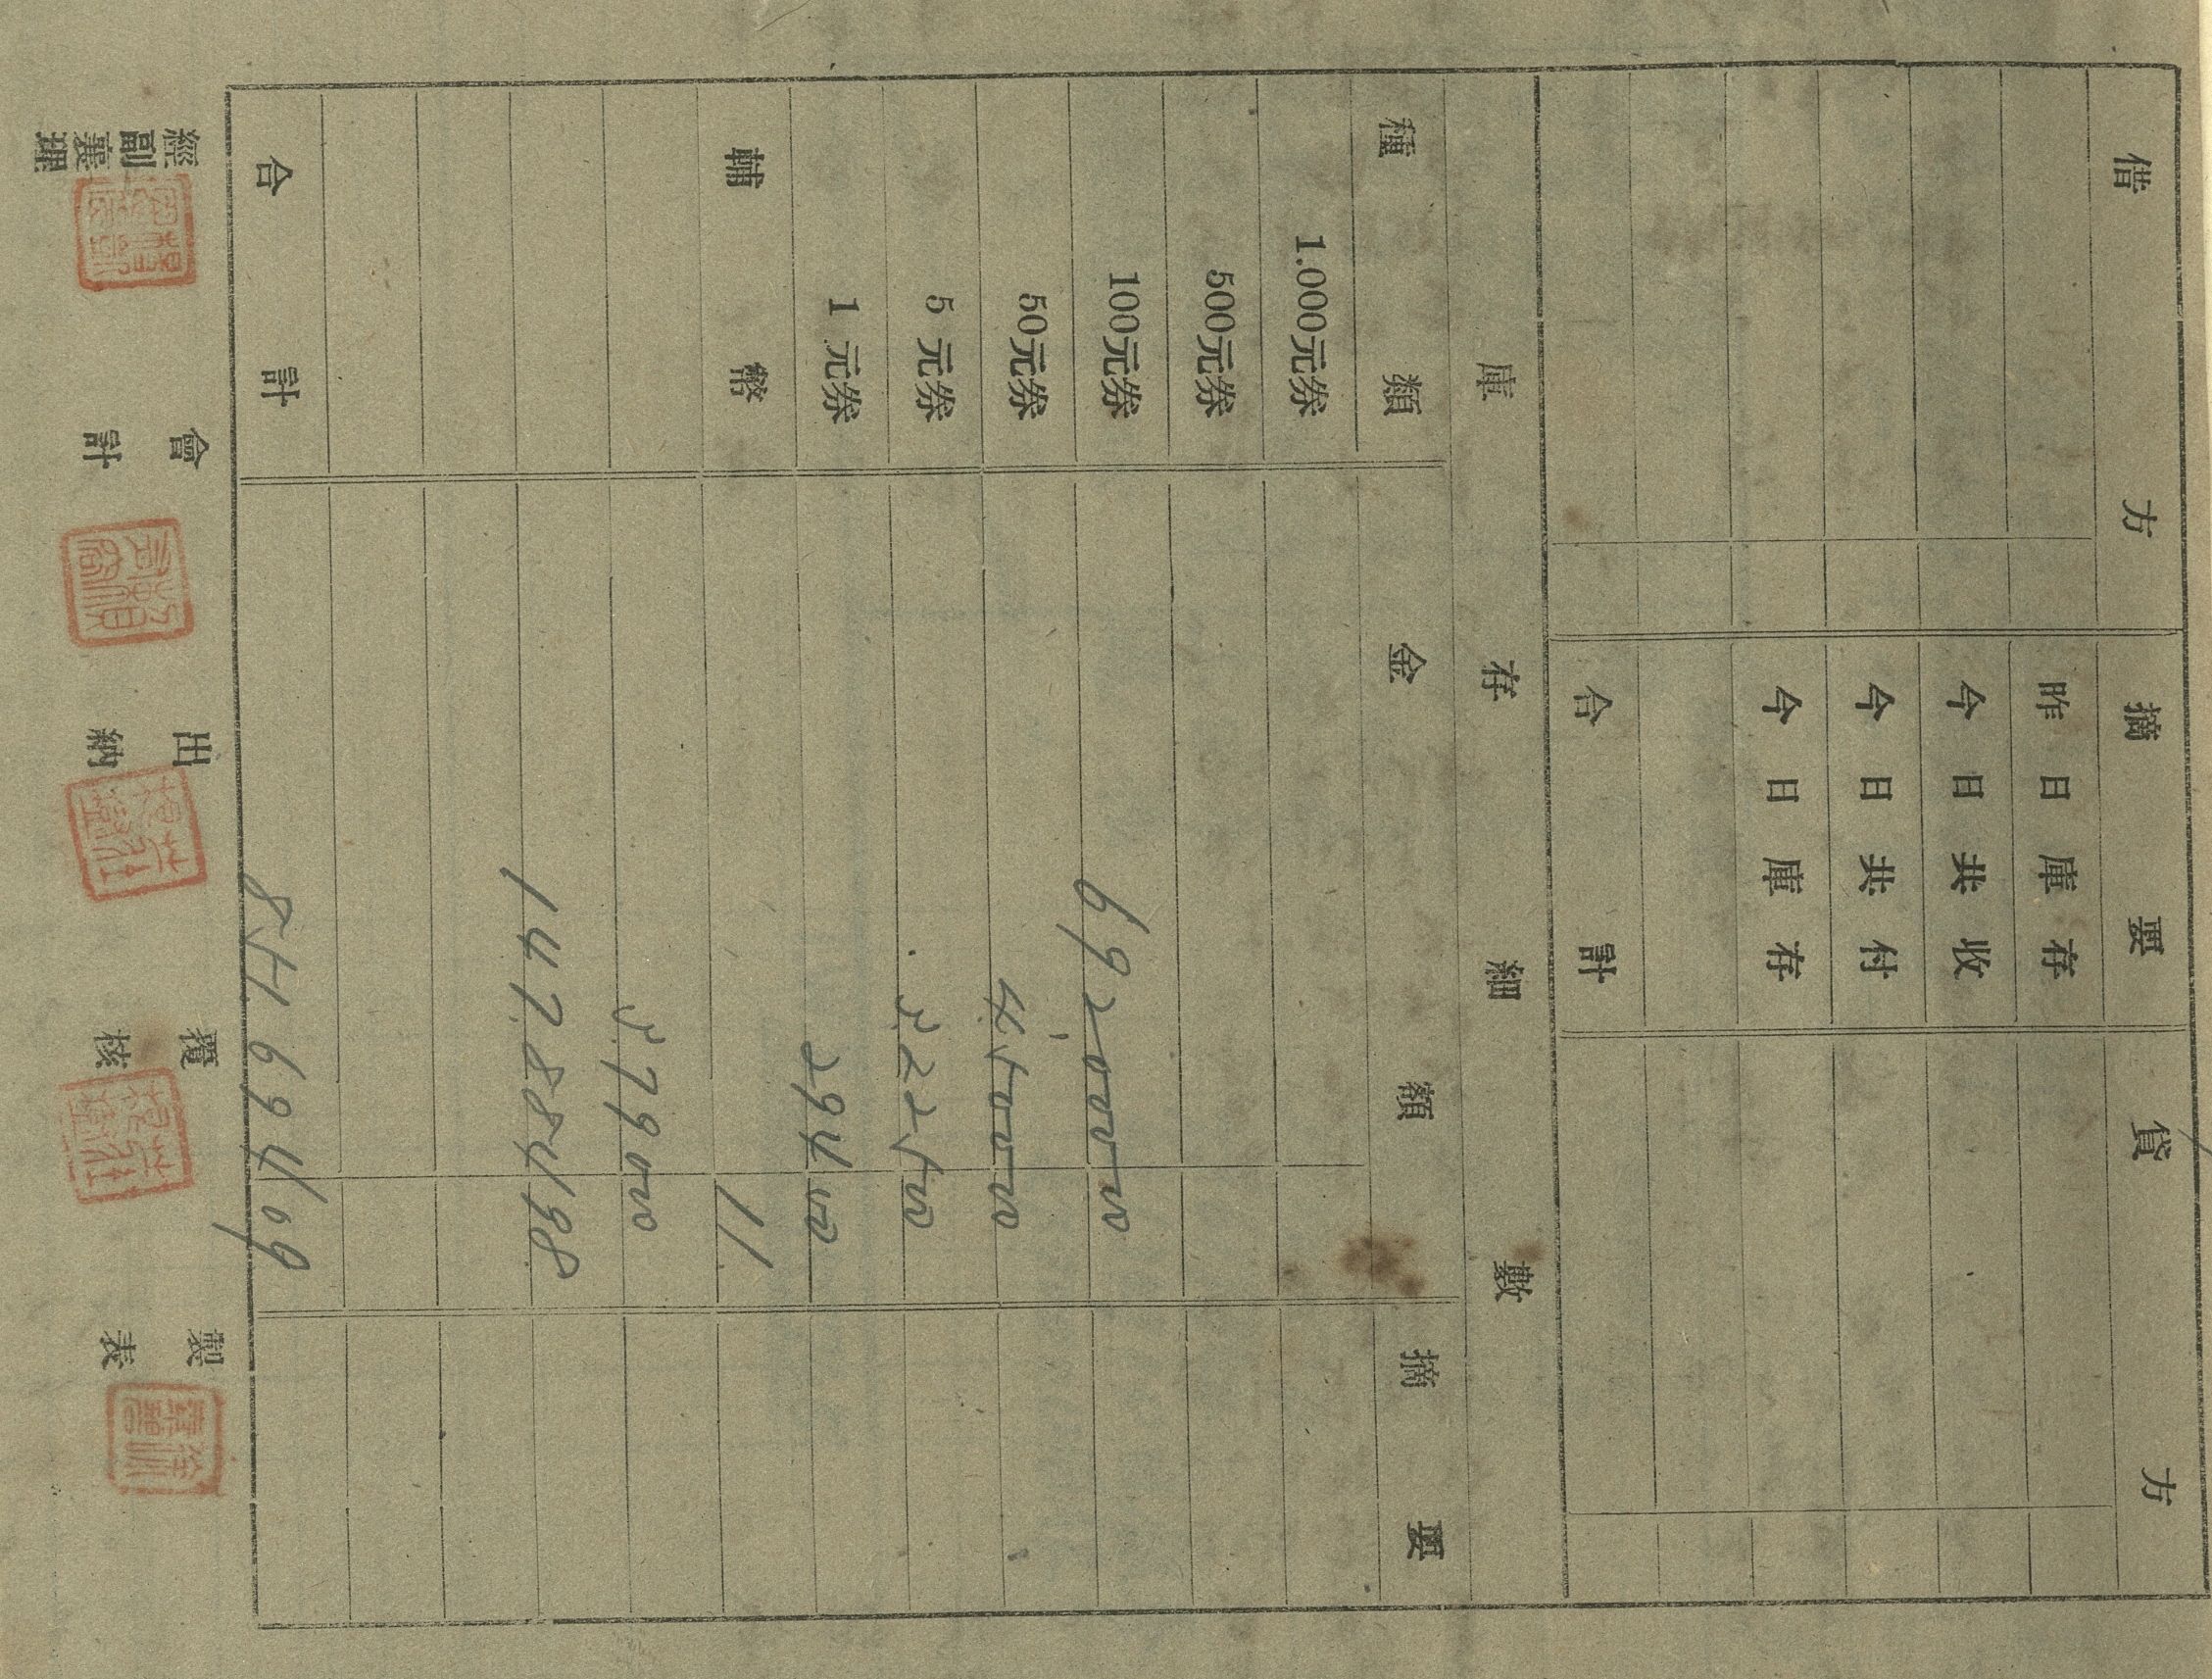 借 方 摘 要 貸 方
昨日庫存
今日共收
今日共付
今日庫存
合 計
庫 存 細 數
種 類 金 額 摘 要
1.000元券
500元券
100元券 692000 00
50元券 4500 00
5元券 3225 00
1元券 294 00
輔 幣 11
3790 00
147884 98
合 計 851694 09
經副襄理 會計 出納 覆核 製表